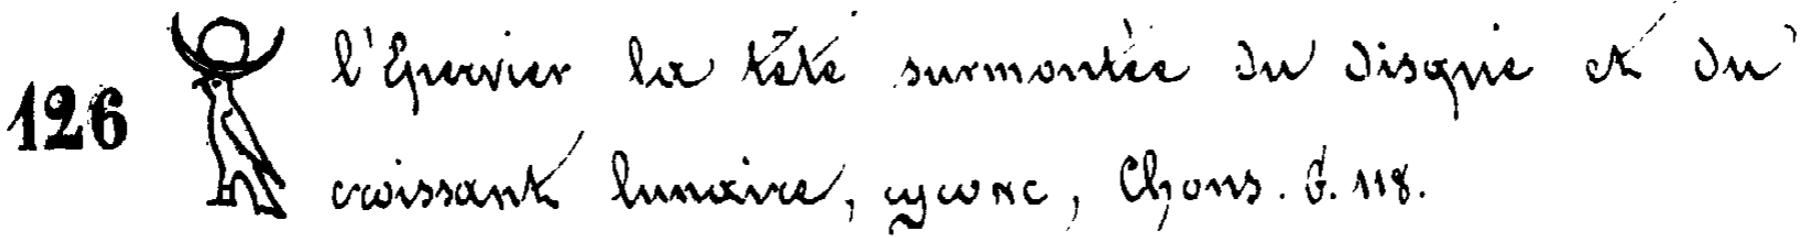 126 l'Epervier la tête surmontée du disque et du
croissant lunaire, ϣωⲛⲥ, Chons. G. 118.